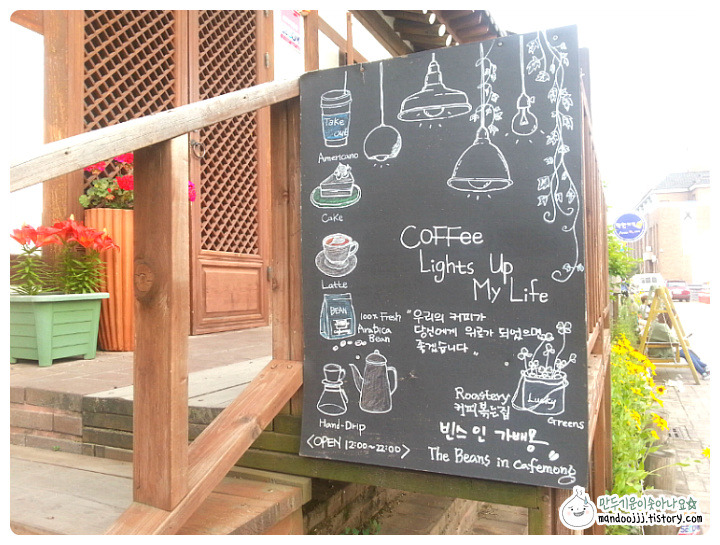 Take
out
Americano
Cake
Latte
BEAN
100% Fresh
Arabica
Bean
Hand-Drip
<OPEN 12:00~22:00>
Coffee
Lights Up
My Life
"우리의 커피가
당신에게 위로가 되었으면
좋겠습니다"
Lucky
Greens
Roastery
커피볶는집
빈스 인 가배몽
The Beans in cafemong
만두기운이솟아나요☆
mandoojjj.tistory.com